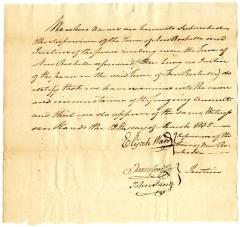 We whose names are hereunto Subscribed
the Supervisor of the Town of New Rochelle and
Justices of the peace residing near the Town of
New Rochelle aforesaid (there being no Justice
of the peace in the said Town of New Rochelle) do
certify that we have examined into the
and circumstances of the foregoing Account
and that we do approve of the Same Witness
our Hands the day of March 1805
Elijah Ward Supervisor of the
Town of New Rochelle
Justices